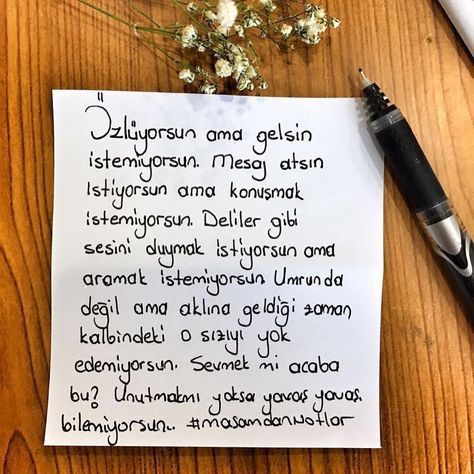 Özlüyorsun ama gelsin
istemiyorsun. Mesaj atsın
istiyorsun ama konuşmak
istemiyorsun. Deliler gibi
sesini duymak istiyorsun ama
aramak istemiyorsun. Umrunda
değil ama aklına geldiği zaman
kalbindeki o sızıyı yok
edemiyorsun. Sevmek mi acaba
bu? Unutmakmı yoksa yavaş yavaş.
bilemiyorsun.. #masamdannotlar